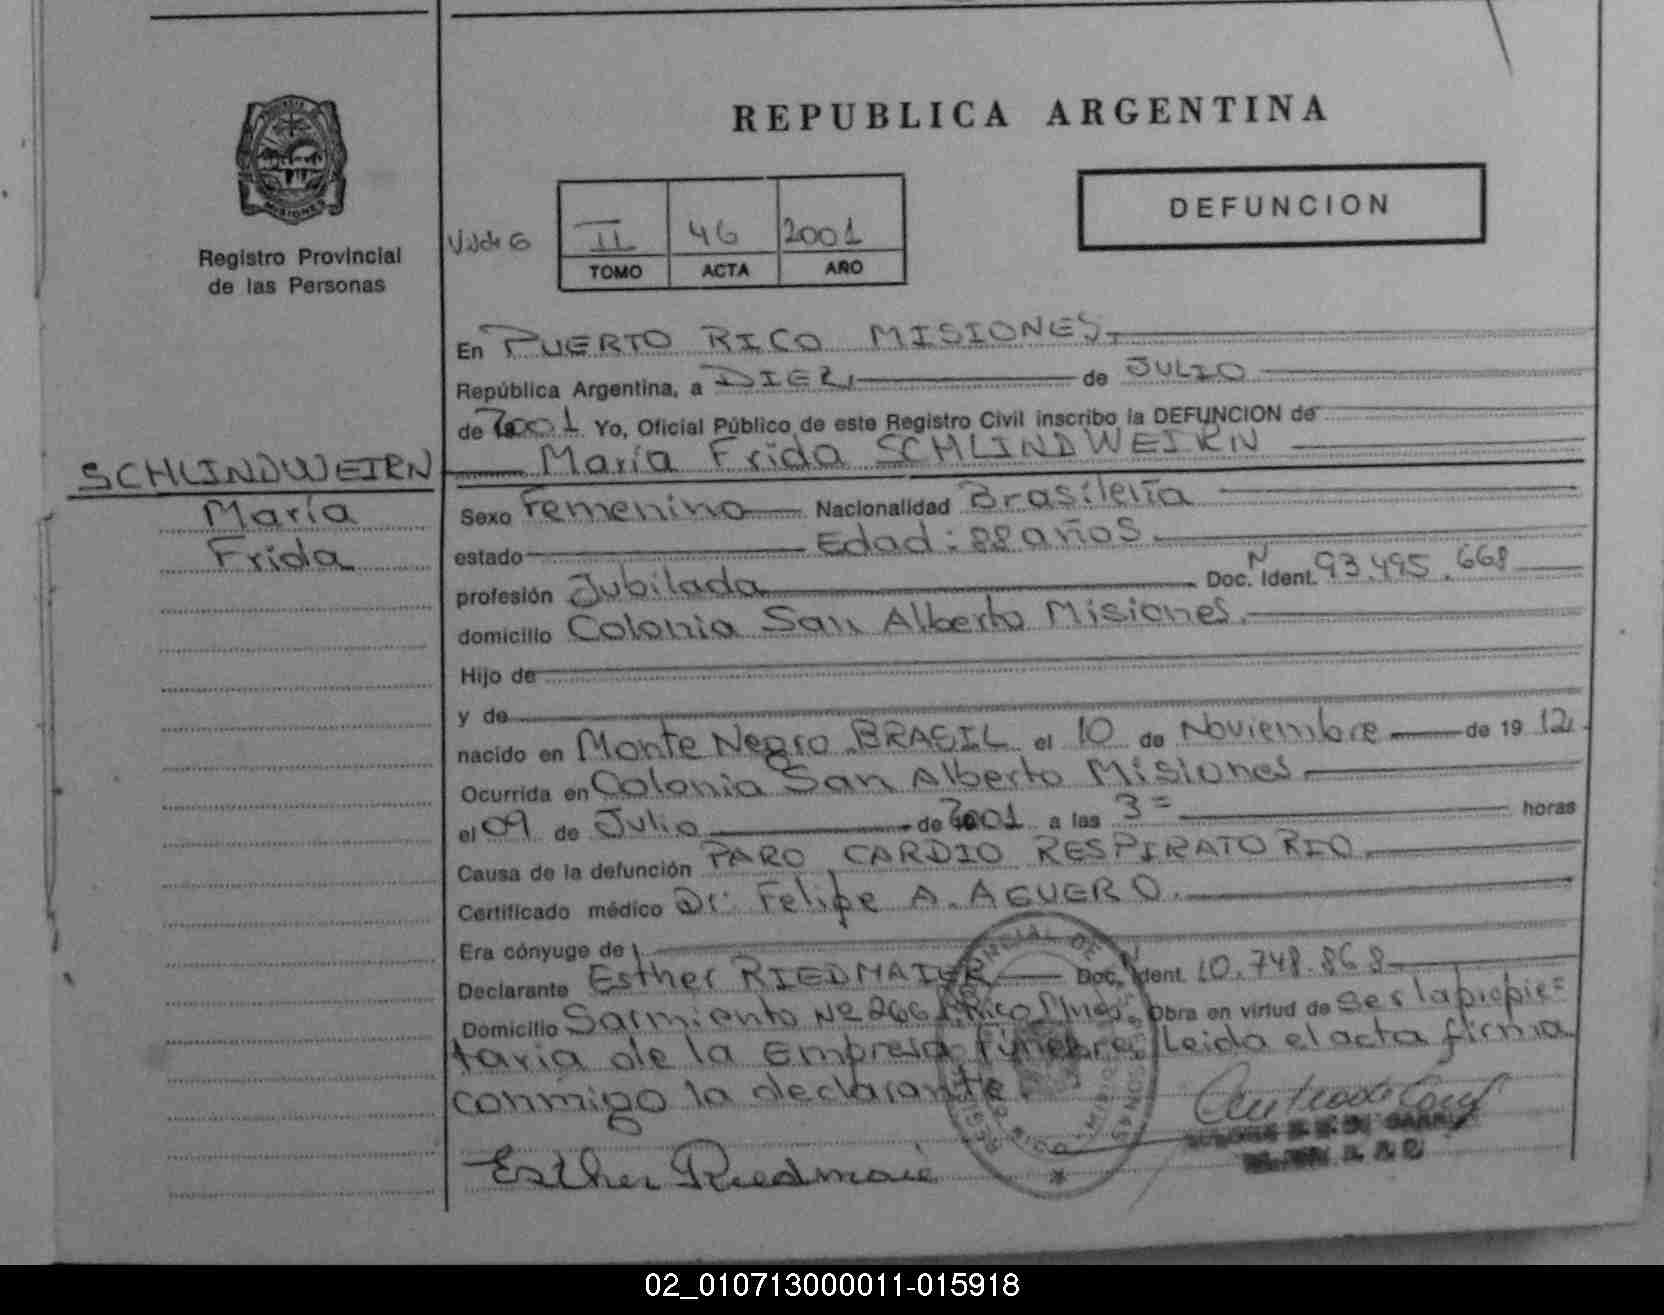 REPUBLICA ARGENTINA
MISIONES
Registro Provincial
de las Personas
DEFUNCION
II 46 2001
TOMO ACTA AÑO
En PUERTO RICO MISIONES,
República Argentina, a DIEZ, de JULIO
de 2001 Yo, Oficial Público de este Registro Civil inscribo la DEFUNCION de
María Frida SCHLINDWEIRN
SCHLINDWEIRN
María
Frida
Sexo Femenino Nacionalidad Brasileña
estado Edad: 88 años.
profesión Jubilada Doc. Nº Ident. 93.495.668
domicilio Colonia San Alberto Misiones.
Hijo de
y de
nacido en Monte Negro BRASIL el 10 de Noviembre de 1912.
Ocurrida en Colonia San Alberto Misiones
el 09 de Julio de 2001 a las 3= horas
Causa de la defunción PARO CARDIO RESPIRATORIO.
Certificado médico Dr. Felipe A. AGUERO.
Era cónyuge de
Declarante Esther RIEDMAIER Doc. Ident. 10.748.868
Domicilio Sarmiento Nº 266 P. Rico Mnes. Obra en virtud de ser la propie=
taria de la Empresa Fúnebre. Leida el acta firma
conmigo la declarante.
Esther Riedmaie
02_010713000011-015918